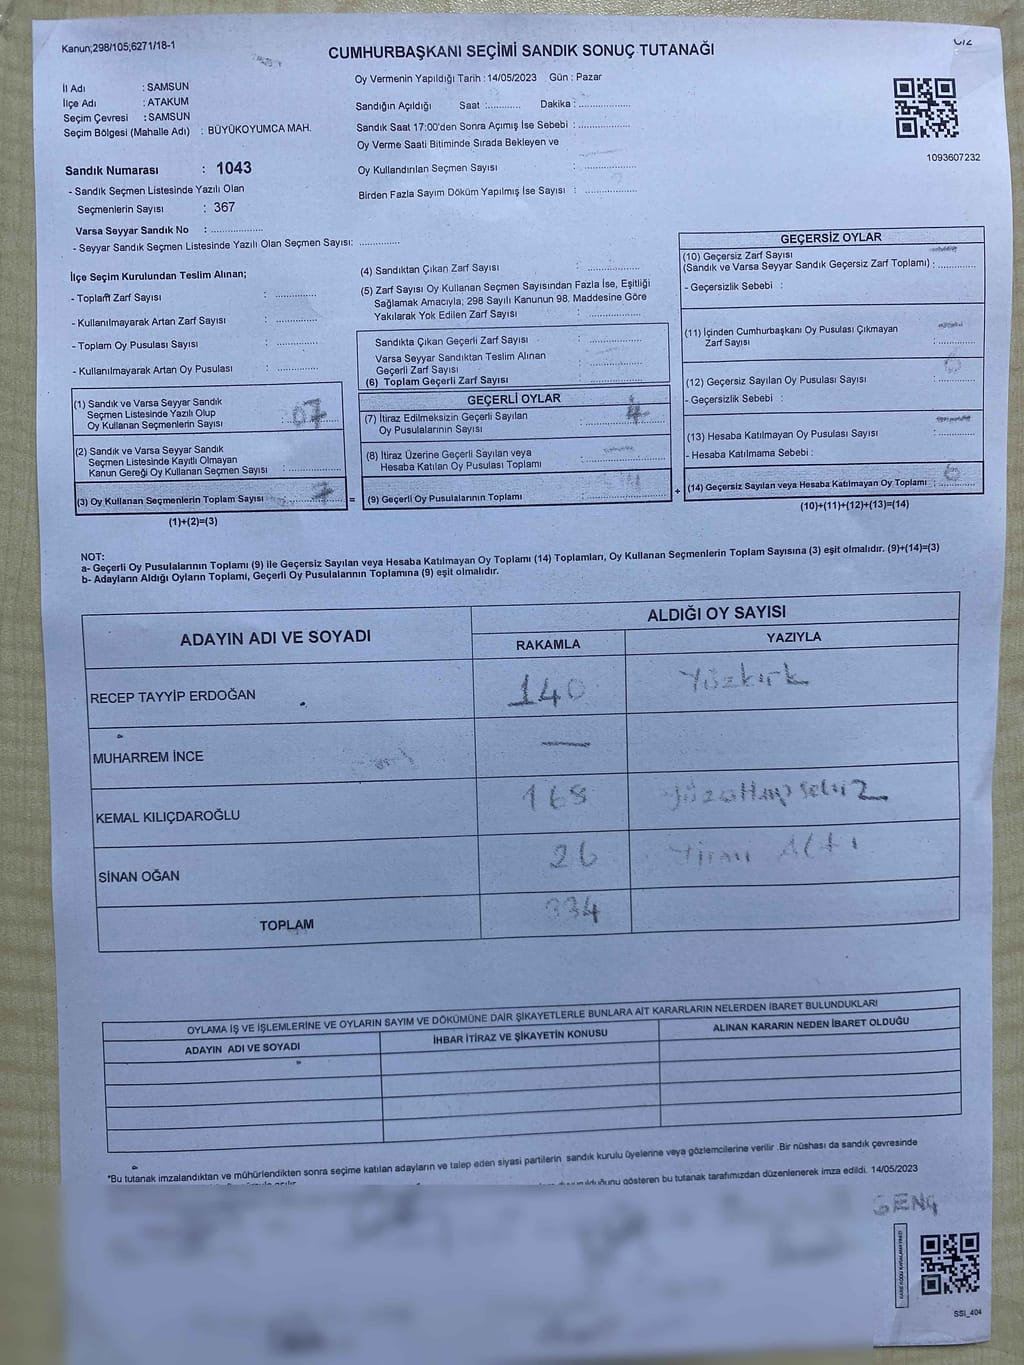 Kanun;298/105;6271/18-1
CUMHURBAŞKANI SEÇİMİ SANDIK SONUÇ TUTANAĞI
İl Adı : SAMSUN
İlçe Adı : ATAKUM
Seçim Çevresi : SAMSUN
Seçim Bölgesi (Mahalle Adı) : BÜYÜKOYUMCA MAH.
Sandık Numarası : 1043
- Sandık Seçmen Listesinde Yazılı Olan
Seçmenlerin Sayısı : 367
Varsa Seyyar Sandık No : ..............
- Seyyar Sandık Seçmen Listesinde Yazılı Olan Seçmen Sayısı: ............
Oy Vermenin Yapıldığı Tarih : 14/05/2023 Gün : Pazar
Sandığın Açıldığı Saat :........... Dakika : ................
Sandık Saat 17:00'den Sonra Açımış İse Sebebi : ................
Oy Verme Saati Bitiminde Sırada Bekleyen ve
Oy Kullandırılan Seçmen Sayısı : ................
Birden Fazla Sayım Döküm Yapılmış İse Sayısı : ................
1093607232
İlçe Seçim Kurulundan Teslim Alınan;
- Toplam Zarf Sayısı : ............
- Kullanılmayarak Artan Zarf Sayısı : ............
- Toplam Oy Pusulası Sayısı : ............
- Kullanılmayarak Artan Oy Pusulası : ............
(1) Sandık ve Varsa Seyyar Sandık
Seçmen Listesinde Yazılı Olup
Oy Kullanan Seçmenlerin Sayısı :
(2) Sandık ve Varsa Seyyar Sandık
Seçmen Listesinde Kayıtlı Olmayan
Kanun Gereği Oy Kullanan Seçmen Sayısı : ................
(3) Oy Kullanan Seçmenlerin Toplam Sayısı :
=
(1)+(2)=(3)
(4) Sandıktan Çıkan Zarf Sayısı : ................
(5) Zarf Sayısı Oy Kullanan Seçmen Sayısından Fazla İse, Eşitliği
Sağlamak Amacıyla; 298 Sayılı Kanunun 98. Maddesine Göre
Yakılarak Yok Edilen Zarf Sayısı : ................
Sandıkta Çıkan Geçerli Zarf Sayısı : ................
Varsa Seyyar Sandıktan Teslim Alınan
Geçerli Zarf Sayısı : ................
(6) Toplam Geçerli Zarf Sayısı : ................
GEÇERLİ OYLAR
(7) İtiraz Edilmeksizin Geçerli Sayılan
Oy Pusulalarının Sayısı :
(8) İtiraz Üzerine Geçerli Sayılan veya
Hesaba Katılan Oy Pusulası Toplamı : ................
(9) Geçerli Oy Pusulalarının Toplamı :
+
GEÇERSİZ OYLAR
(10) Geçersiz Zarf Sayısı
(Sandık ve Varsa Seyyar Sandık Geçersiz Zarf Toplamı) : ............
- Geçersizlik Sebebi :
(11) İçinden Cumhurbaşkanı Oy Pusulası Çıkmayan
Zarf Sayısı : ............
(12) Geçersiz Sayılan Oy Pusulası Sayısı : ............
- Geçersizlik Sebebi :
(13) Hesaba Katılmayan Oy Pusulası Sayısı : ............
- Hesaba Katılmama Sebebi :
(14) Geçersiz Sayılan veya Hesaba Katılmayan Oy Toplamı : ............
(10)+(11)+(12)+(13)=(14)
NOT:
a- Geçerli Oy Pusulalarının Toplamı (9) ile Geçersiz Sayılan veya Hesaba Katılmayan Oy Toplamı (14) Toplamları, Oy Kullanan Seçmenlerin Toplam Sayısına (3) eşit olmalıdır. (9)+(14)=(3)
b- Adayların Aldığı Oyların Toplamı, Geçerli Oy Pusulalarının Toplamına (9) eşit olmalıdır.
ADAYIN ADI VE SOYADI ALDIĞI OY SAYISI
RAKAMLA YAZIYLA
RECEP TAYYİP ERDOĞAN 140 Yüzkırk
MUHARREM İNCE —
KEMAL KILIÇDAROĞLU 168 yüzaltmışsekiz
SİNAN OĞAN 26 Yirmi Altı
TOPLAM 334
OYLAMA İŞ VE İŞLEMLERİNE VE OYLARIN SAYIM VE DÖKÜMÜNE DAİR ŞİKAYETLERLE BUNLARA AİT KARARLARIN NELERDEN İBARET BULUNDUKLARI
ADAYIN ADI VE SOYADI İHBAR İTİRAZ VE ŞİKAYETİN KONUSU ALINAN KARARIN NEDEN İBARET OLDUĞU
*Bu tutanak imzalandıktan ve mühürlendikten sonra seçime katılan adayların ve talep eden siyasi partilerin sandık kurulu üyelerine veya gözlemcilerine verilir .Bir nüshası da sandık çevresinde
gösteren bu tutanak tarafımızdan düzenlenerek imza edildi. 14/05/2023
GENÇ
SSİ_404